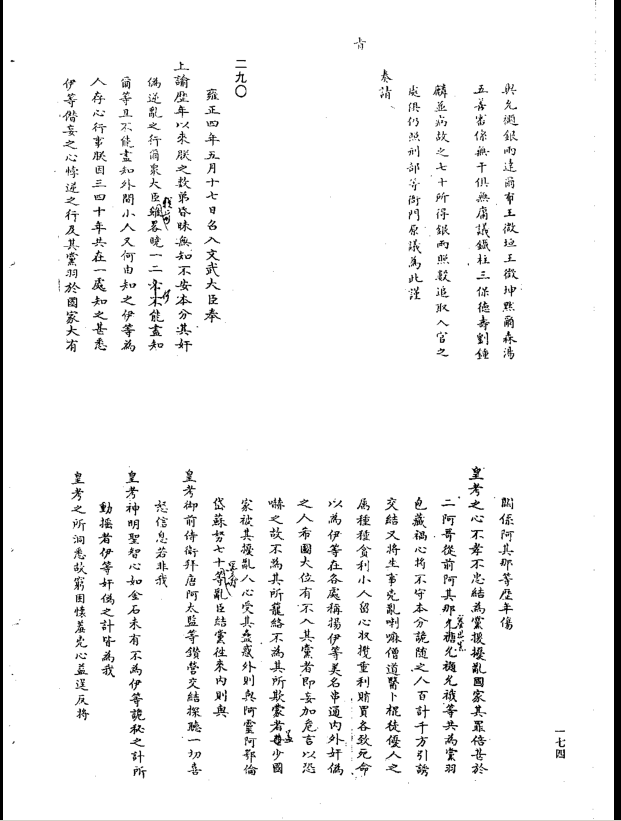 與允禵銀兩達爾布王徵垣王徵珅默爾森湯
五善審係無干俱無庸議鐵柱三保德壽劉鍾
麟並病故之七十所得銀兩照數追取入官之
處俱仍照刑部等衙門原議為此謹
奏請
旨
二九〇
雍正四年五月十七日召入文武大臣奉
上諭歷年以來朕之數弟昏昧無知不安本分其奸
偽逆亂之行爾衆大臣畧曉一二不能盡知
爾等且不能盡知外間小人又何由知之伊等為
人存心行事朕因三四十年共在一處知之甚悉
伊等僭妄之心悖逆之行及其黨羽於國家大有
關係阿其那等歷年傷
皇考之心不孝不忠結為黨援擾亂國家其罪倍甚於
二阿哥從前阿其那允禟允禵允䄉等共為黨羽
包藏禍心將不守本分詭隨之人百計千方引誘
交結又將生事兇亂喇嘛僧道醫卜棍徒優人之
屬種種貪利小人留心收攬重利賄買各致死命
以為伊等在各處稱揚伊等美名串通內外奸偽
之人希圖大位有不入其黨者即妄加危言以恐
嚇之故不為其所籠絡不為其所欺蒙者甚少國
家被其擾亂人心受其蠱惑外則與阿靈阿鄂倫
岱蘇努七十等亂臣結黨往來內則與
皇考御前侍衛拜唐阿太監等鑽營交結探聽一切喜
怒信息若非我
皇考神明聖智心如金石未有不為伊等詭秘之計所
動搖者伊等奸偽之計皆為我
皇考之所洞悉故窮困懷羞兇心益逞反將
一七四